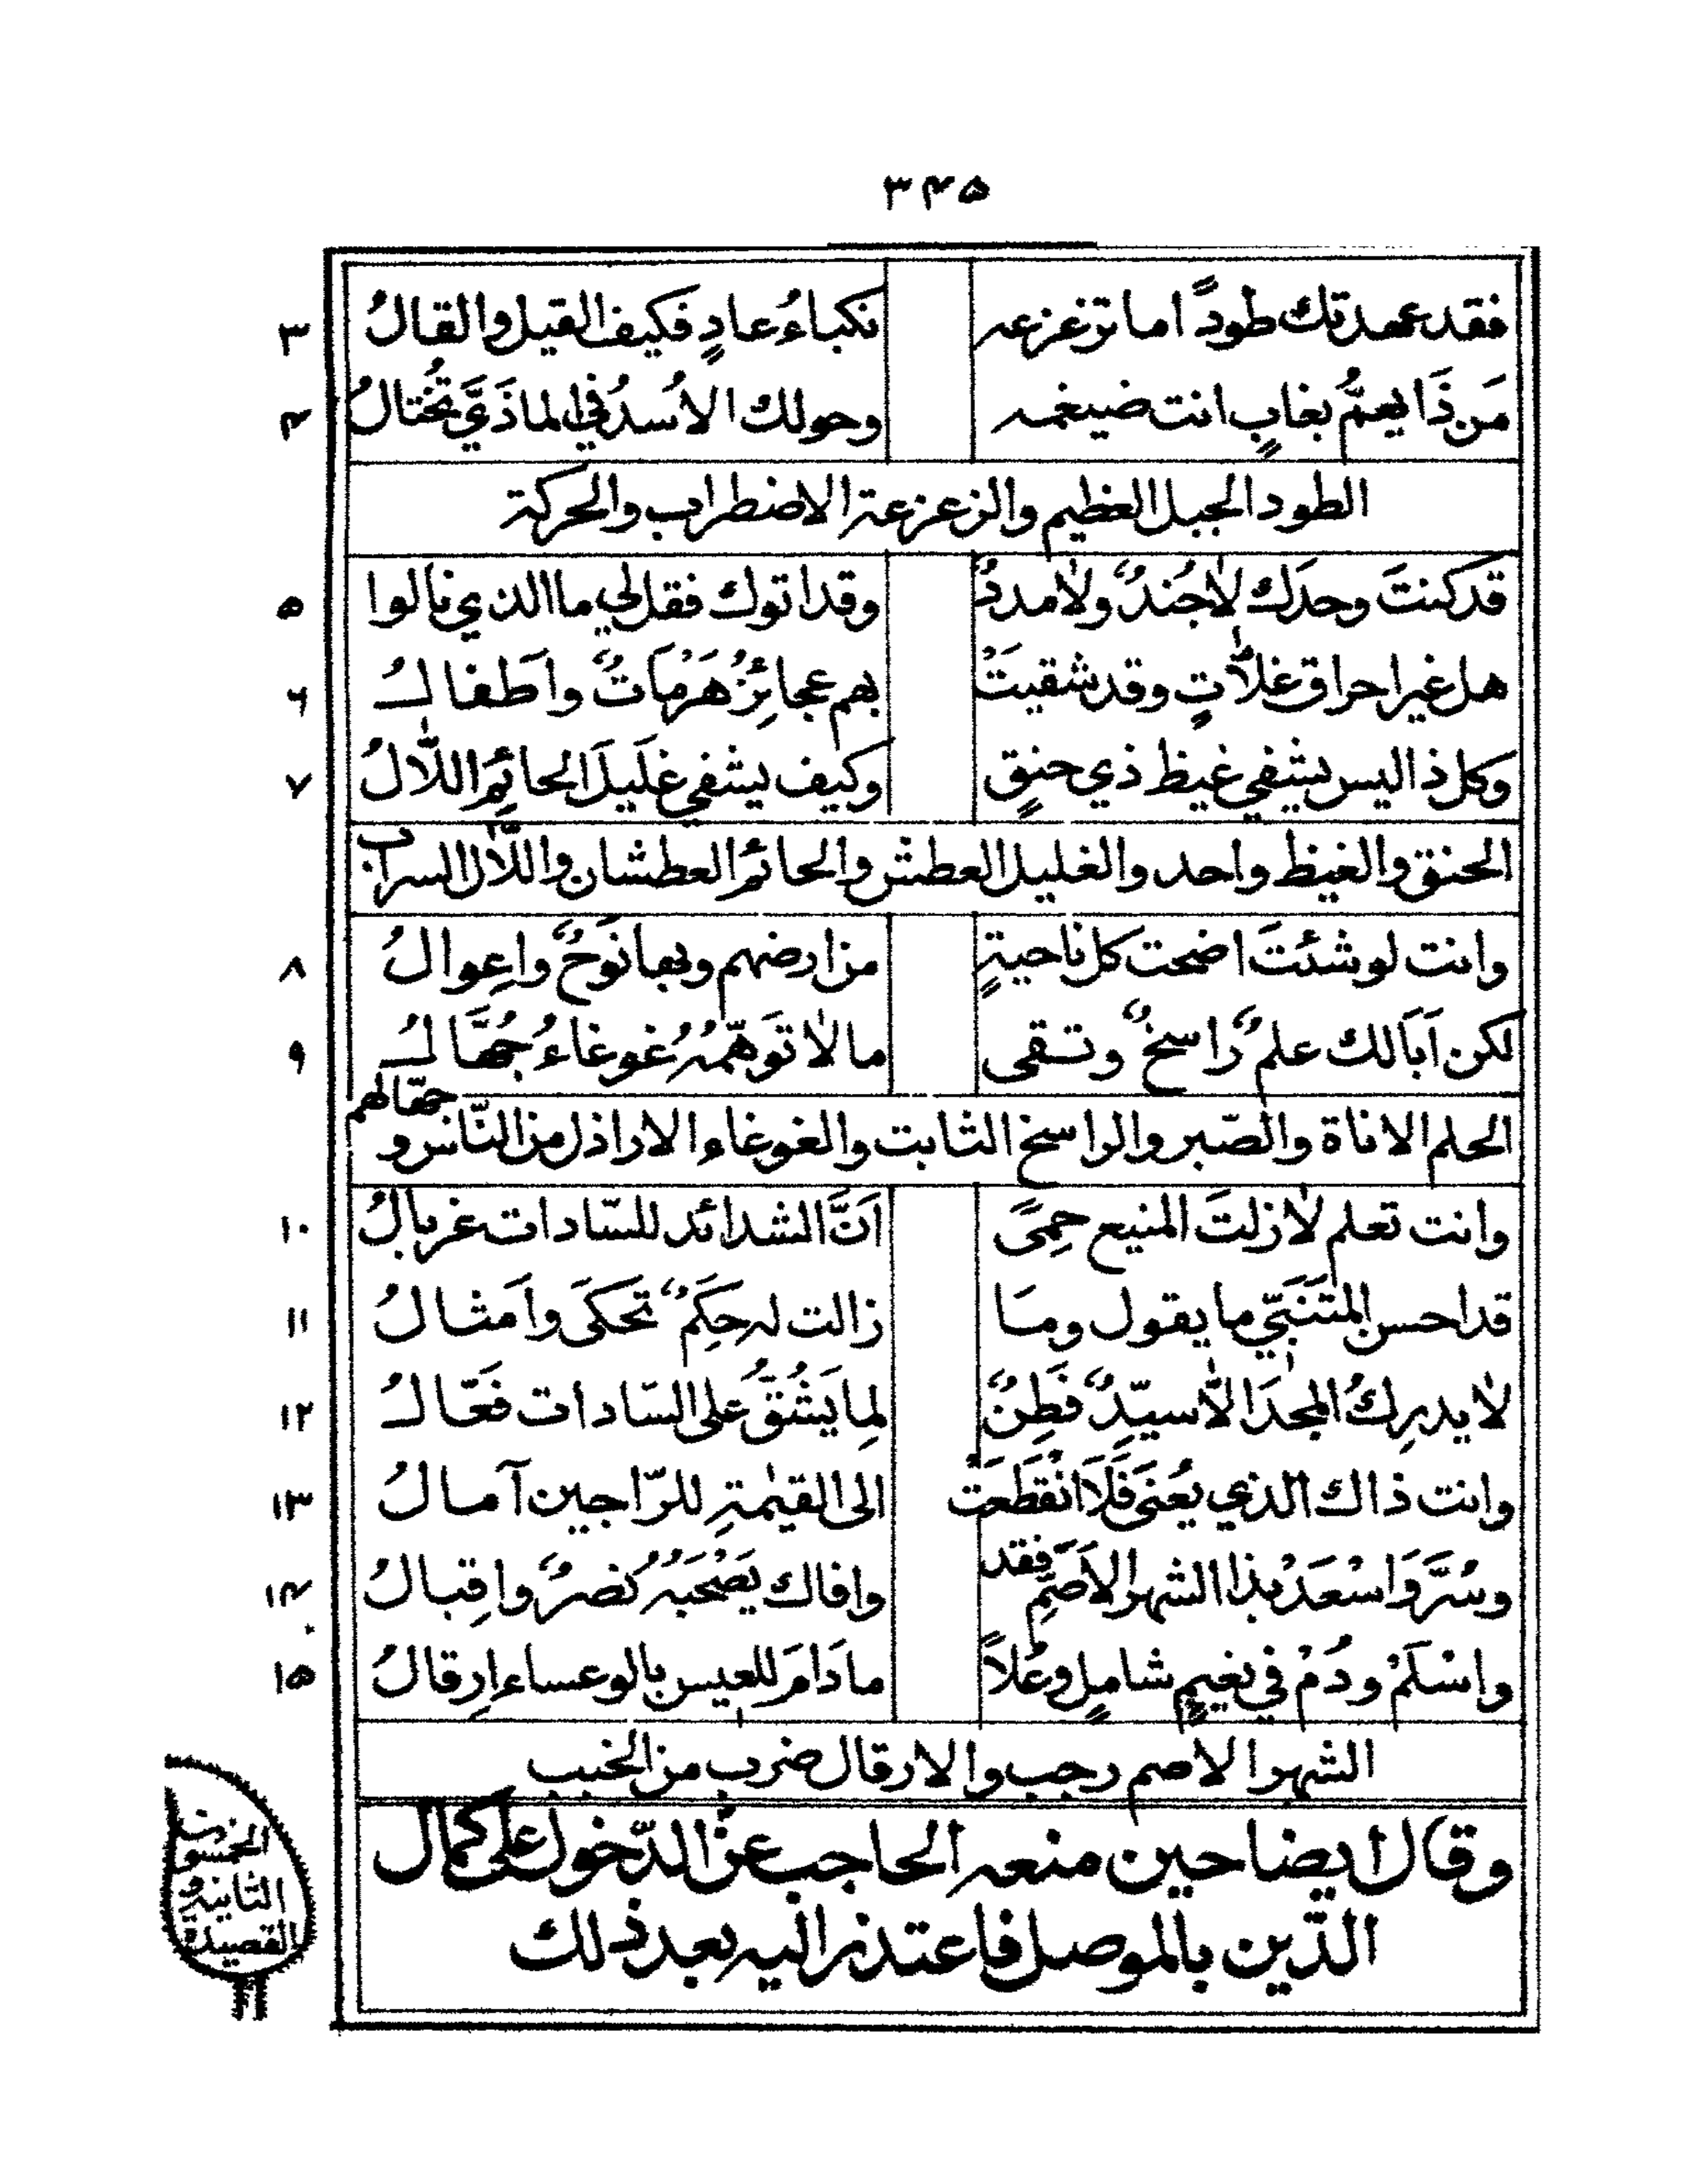 ۳۴۵
فقد عهدتك طودًا ما تزعزعه نكباءُ عادٍ فكيف القيل والقالُ ۳
مَن ذَا يعمُّ بغابٍ انت ضيغمه وحولك الاُسدُ في الماذَيّ تَختالُ ۴
الطود الجبل العظيم والزعزعة الاضطراب والحركة
قد كنتَ وحدَك لا جُندٌ ولا مددٌ وقد اتوك فقل لي ما الذي نالوا ۵
هل غير احراق غلاّتٍ وقد شقيَتْ بهم عجائِزُ هَرْمَاتٌ واَطفالُ ۶
وكل ذا ليس يشفي غيظ ذي حنقٍ وكيف يشفي غَلَيلَ الحائِمِ اللّالُ ۷
الحنق والغيظ واحد والغليل العطش والحائم العطشان واللّال السراب
وانت لو شئتَ اضحت كل ناحيةٍ من ارضهم وبها نَوحٌ واِعوالُ ۸
لكن اَبَا لك علمٌ راسخٌ وتقى ما لا تَوَهَّمُهُ غوغاءُ جُهَّالُ ۹
الحلم الاناة والصّبر والراسخ الثابت والغوغاء الاراذل من النّاس و جهّالهم
وانت تعلم لا زلتَ المنيع حِمىً اَنَّ الشدائد للسّادات غربالُ ۱۰
قد احسن المتَنَبّي ما يقول ومَا زالت له حِكَمٌ تَحكَى واَمثالُ ۱۱
لا يدرِكُ المجدَ الاّ سيّدٌ فَطِنٌ لِما يَشُقُّ على السّادات فَعّالُ ۱۲
وانت ذاك الذي يُعنَى فَلَا انْقَطَعَتْ الى القيٰمةِ للرّاجين آمالُ ۱۳
وسُرَّ وَاسْعَدْ بذا الشهر الاَصَمِّ فقد وافاك يَصْحَبُهُ نصرٌ واِقبالُ ۱۴
واِسْلَمْ ودُمْ في نعيمٍ شاملٍ وعُلاً ما دَامَ للعيس بالوعساء اِرقالُ ۱۵
الشهر الاصم رجب والارقال ضرب من الخبب
وقال ايضا حين منعه الحاجب عن الدّخول على كمال
الدّين بالموصل فاعتذر اليه بعد ذلك
القصيدة
الثانية و
الخمسون